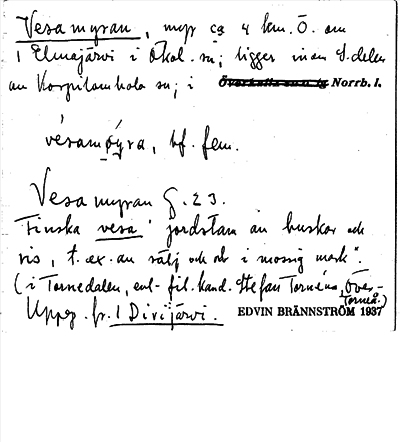 Vesamyran, myr ca 4 km. Ö. om
1 Elmajärvi i Ökal. sn; ligger inom S. delen
av Korpilombolo sn; i Norrb. l.
vésamøyra, bf. fem.
Vesamyran G. 23.
Finska vesa "jordstam av buskar och
ris, t. ex. av sälj och dl i mossig mark".
(i Tornedalen, enl. fil. kand. Stefan Tornéus, Över-
Torneå.)
Uppg. fr. 1 Divijärvi.
EDVIN BRÄNNSTRÖM 1937